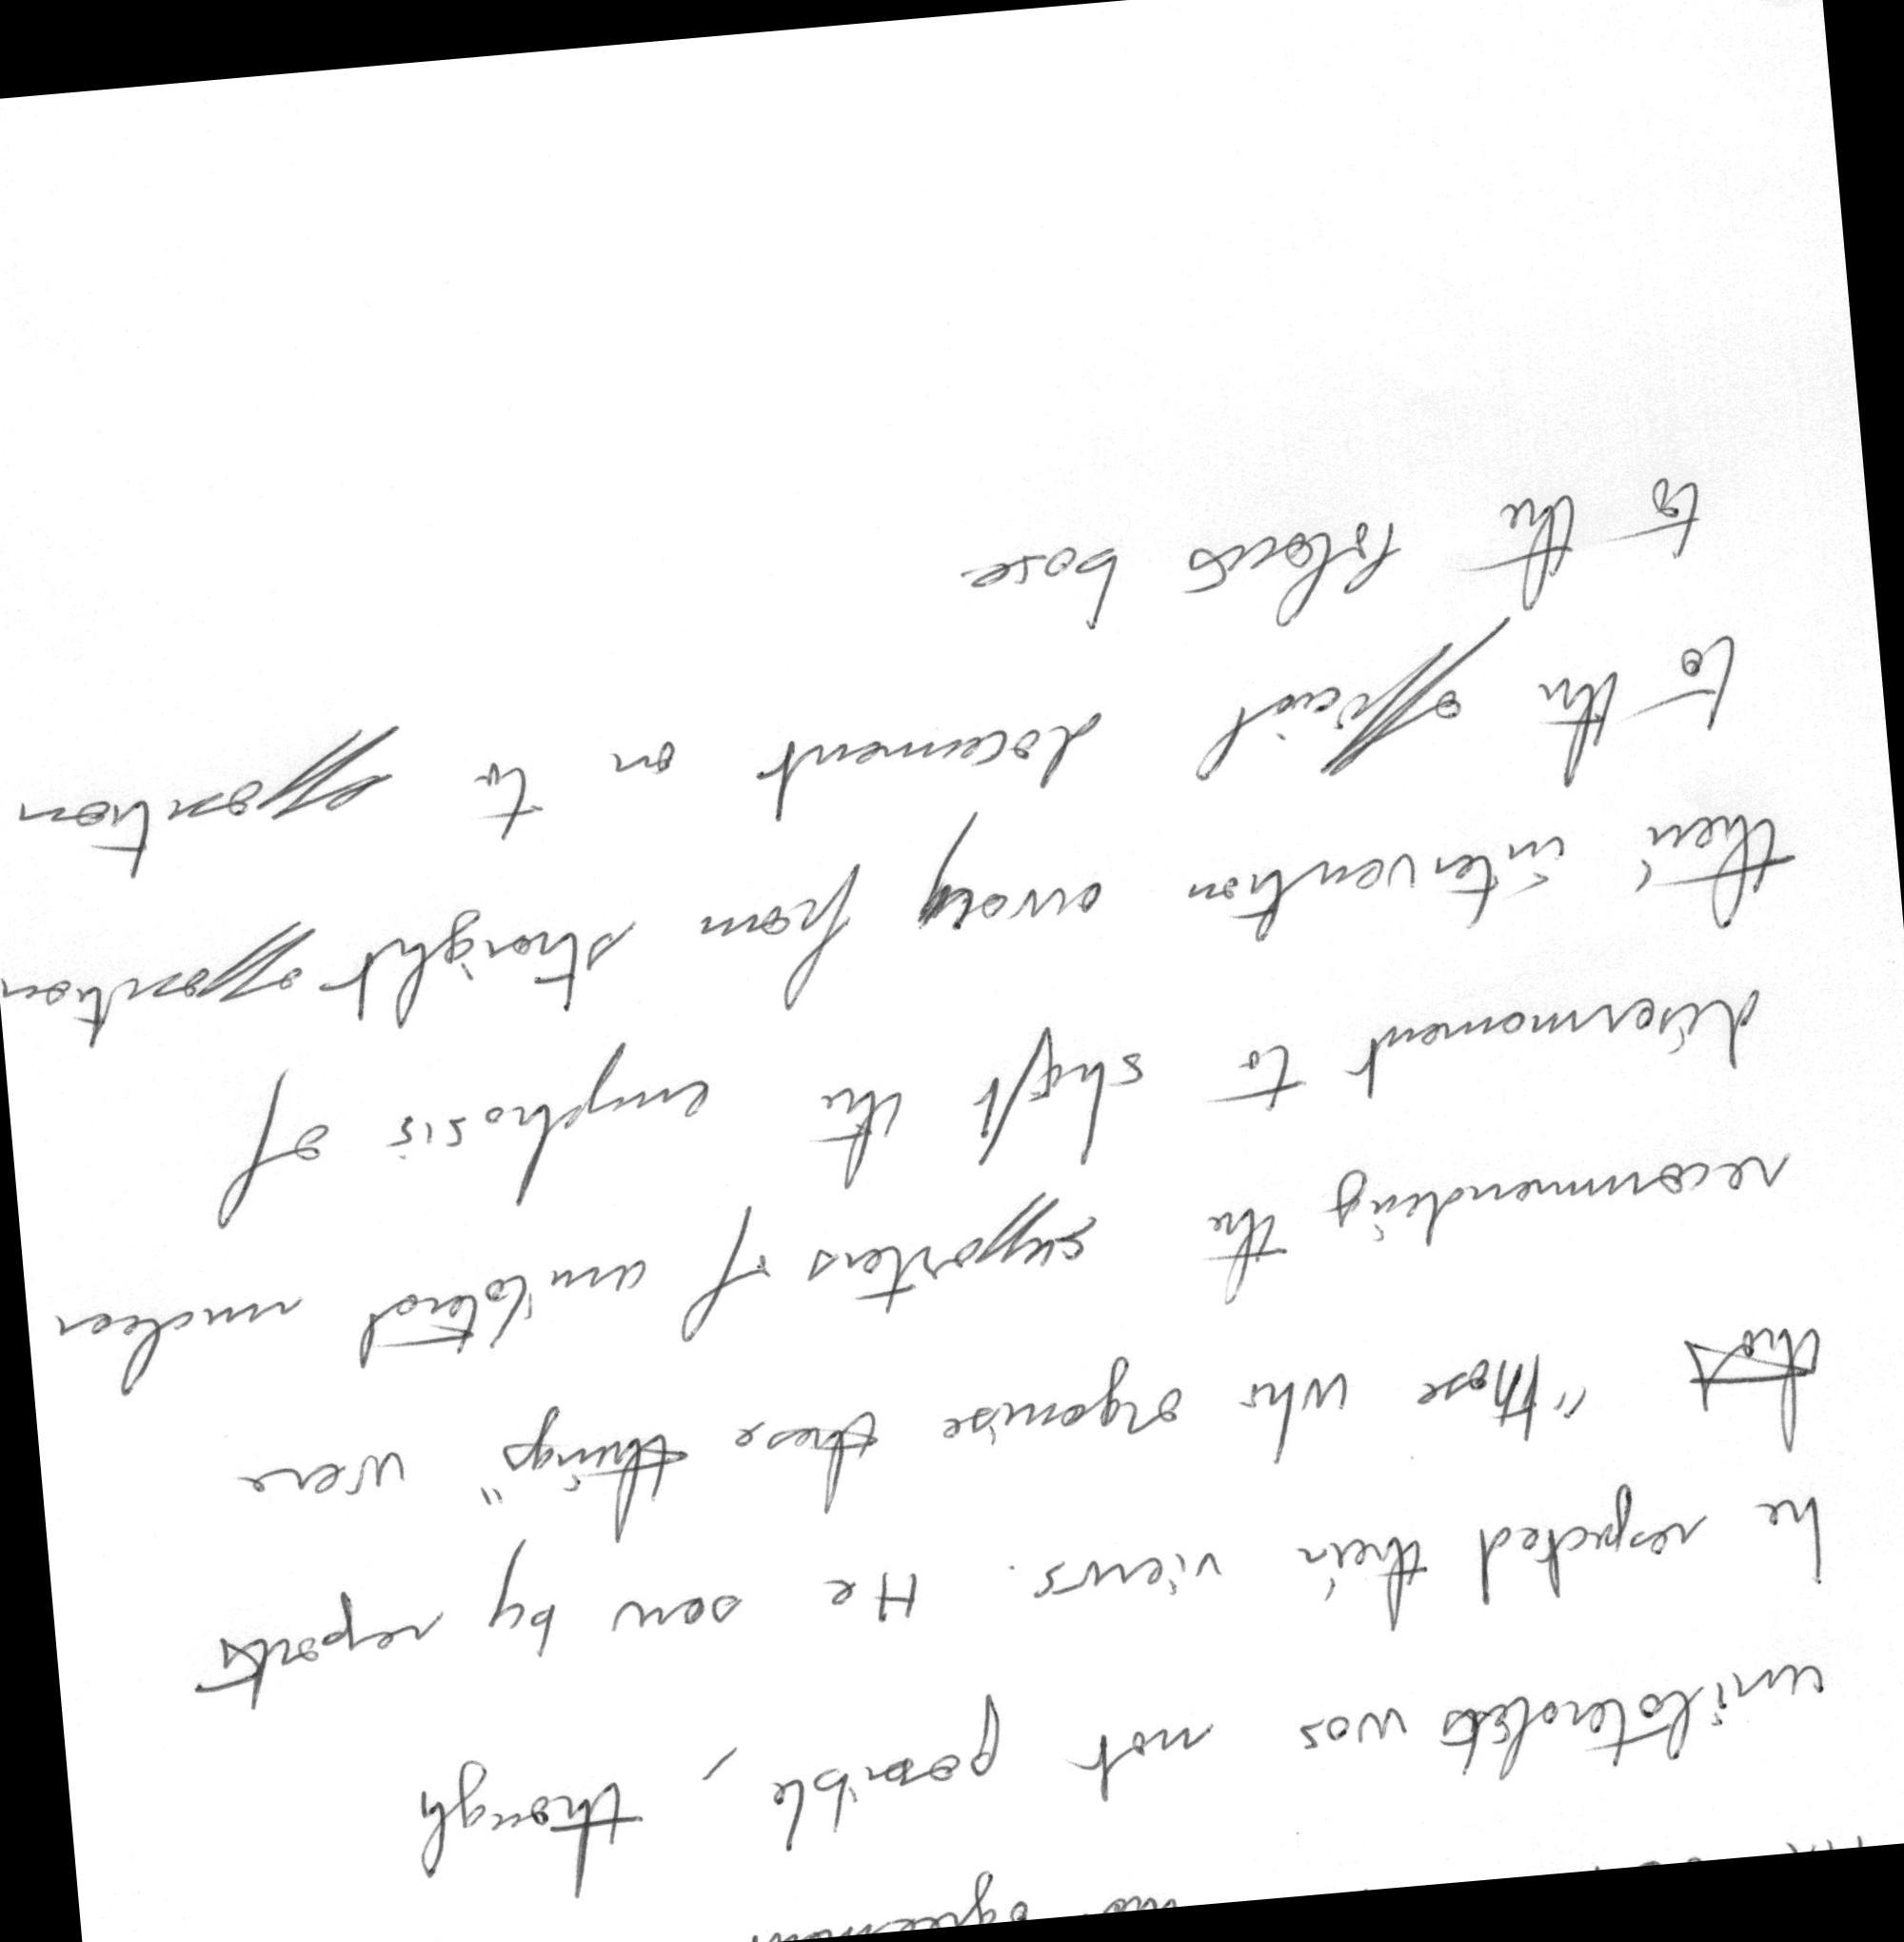 unilateralists was not possible, though
he respected their views. He saw by reports
that "those who organise these things" were
recommending the supporters of unilateral nuclear
disarmament to shift the emphasis of
their intervention away from straight opposition
to the official document on to opposition
to the Polaris base